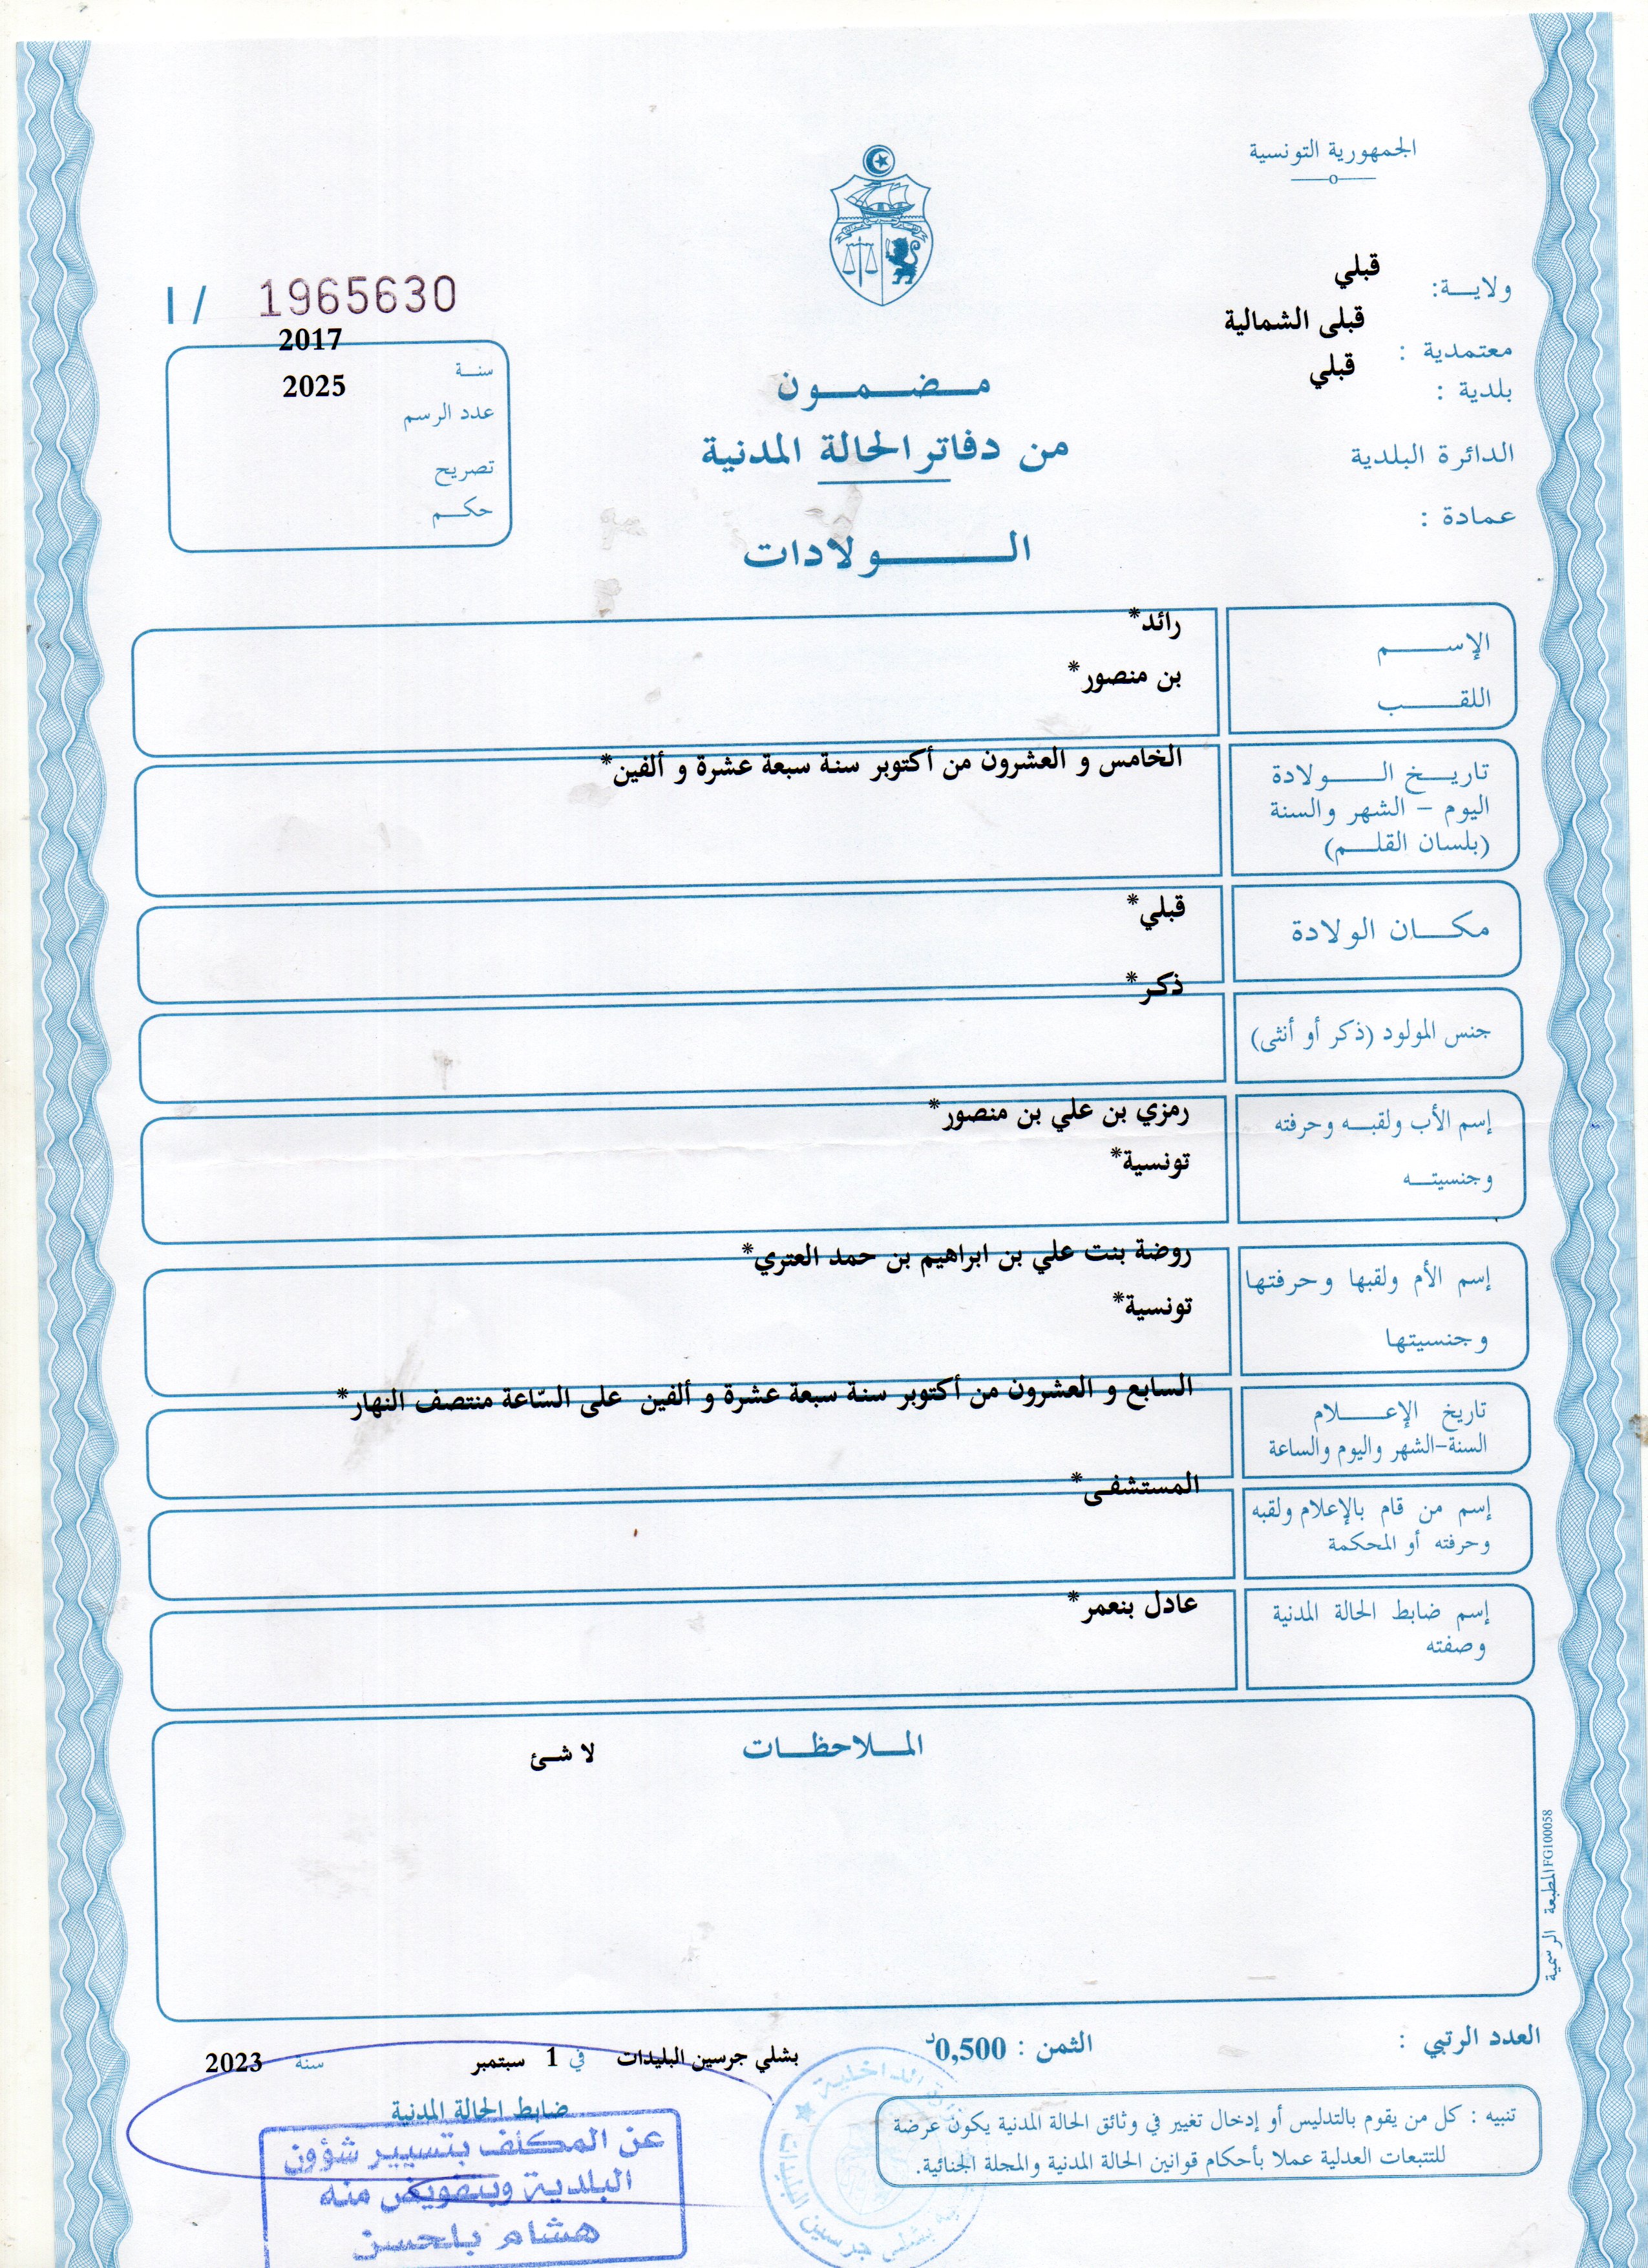 الجمهورية التونسية
ولايـــة: قبلي
معتمدية : قبلى الشمالية
بلدية : قبلي
الدائرة البلدية
عمادة :
1965630 / I
2017
سنـــة
2025
عدد الرسم
تصريح
حكـــم
مـــضـــمـــون
من دفاتر الحالة المدنية
الـــــولادات
الإســـــم رائد*
اللقـــــب بن منصور*
تاريـــخ الـــــولادة الخامس و العشرون من أكتوبر سنة سبعة عشرة و ألفين*
اليوم – الشهر والسنة
(بلسان القلـــم)
مكـــان الولادة قبلي*
ذكر*
جنس المولود (ذكر أو أنثى)
إسم الأب ولقبـــه وحرفته رمزي بن علي بن منصور*
وجنسيتـــه تونسية*
إسم الأم ولقبها وحرفتها روضة بنت علي بن ابراهيم بن حمد العتري*
وجنسيتها تونسية*
السابع و العشرون من أكتوبر سنة سبعة عشرة و ألفين على السّاعة منتصف النهار*
تاريخ الإعـــــلام
السنة-الشهر واليوم والساعة
المستشفى*
إسم من قام بالإعلام ولقبه
وحرفته أو المحكمة
إسم ضابط الحالة المدنية عادل بنعمر*
وصفته
المـــلاحظـــات لا شئ
المطبعة الرسمية FG100058
العدد الرتبي :
الثمن : 0,500د
بشلي جرسين البليدات في 1 سبتمبر سنة 2023
ضابط الحالة المدنية
عن المكلف بتسيير شؤون
البلدية وبتفويض منه
هشام بلحسن
تنبيه : كل من يقوم بالتدليس أو إدخال تغيير في وثائق الحالة المدنية يكون عرضة
للتتبعات العدلية عملا بأحكام قوانين الحالة المدنية والمجلة الجنائية.
الداخلية
بشلي جرسين